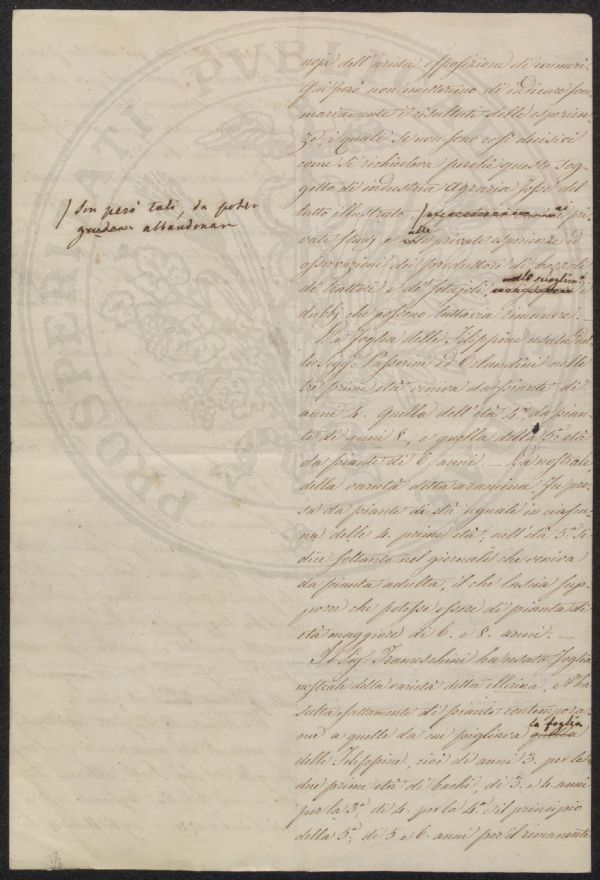 noja dell'arida esposizione di numeri.
Qui però non ometteremo di indicare som-
mariamente i risultati delle esperien-
ze, i quali se non sono così decisivi
come si richiedeva perchè questo sog-
getto di industria Agraria fosse del
tutto illustrato / ai pri-
vati studj e alle private esperienze ed
osservazioni dei produttori di bozzoli
di trattori e de' setajoli, lo sciogliere i
dubbj che possono tuttavia rimanere. —
/ Son però tali, da poter
abbandonar
La foglia delle Filippine usata dal-
li Sigg. Passerini ed Orlandini nelle
tre prime età veniva da piante di
anni 4. Quella dell'età 4.ª da pian-
te di anni 8, e quella della 5.ª età
da piante di 6 anni. — La nostrale,
della varietà detta arancina fu pre-
sa da piante di età uguale in ciascu-
na delle 4. prime età, nell'età 5.ª si
dice soltanto nel giornale che veniva
da pianta adulta, il che lascia sup-
porre che potesse essere di pianta di
età maggiore di 6. e 8. anni. —
Il Sig. Franceschini ha usato foglia
nostrale della varietà detta Morina, e l'ha
scelta esattamente di piante contempora-
nee a quelle da cui pigliava la foglia quella
delle Filippine, cioè di anni 3. per le
due prime età di bachi, di 3. e 4. anni
per la 3.ª, di 4. per la 4.ª e il principio
della 5.ª, di 5 e 6. anni per il rimanente
PROSPERITATI PVBLICAE